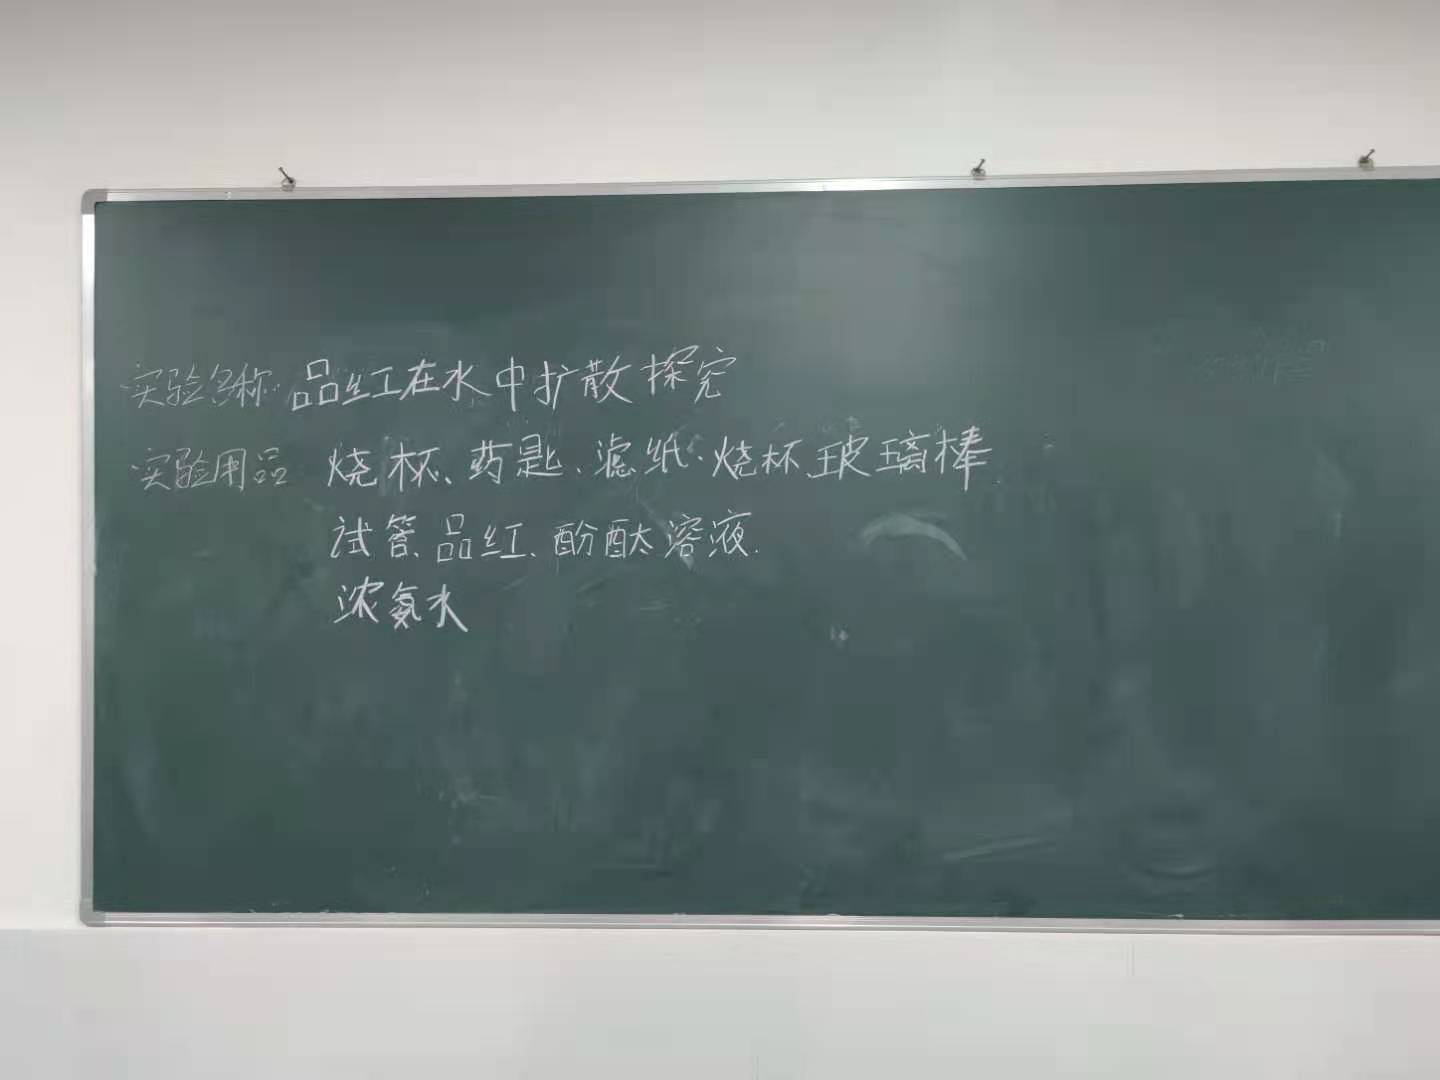 实验名称 品红在水中扩散探究
实验用品 烧杯、药匙、滤纸、烧杯、玻璃棒
试管、品红、酚酞溶液.
浓氨水